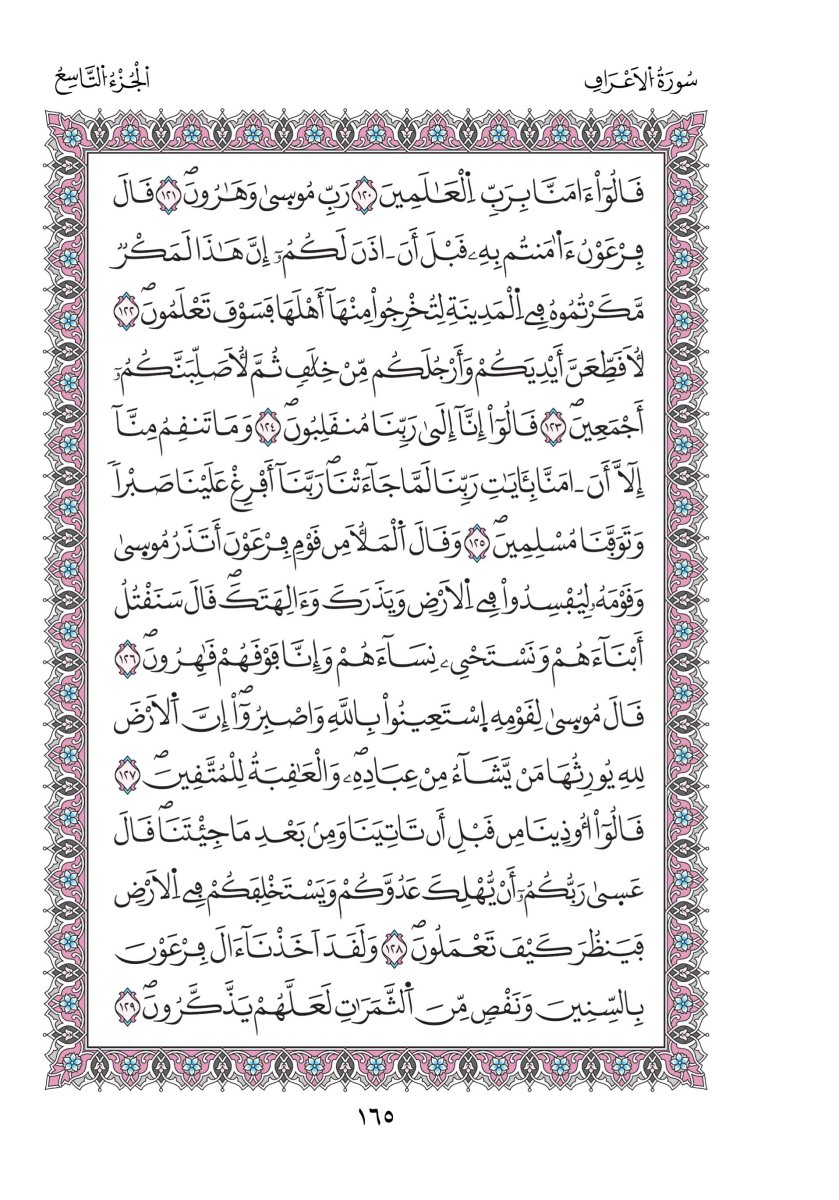 سُورَةُ اُ۬لَاعْرَافِ
اَ۬لْجُزْءُ اُ۬لتَّاسِعُ
قَالُوٓاْ ءَامَنَّا بِرَبِّ اِ۬لْعَٰلَمِينَ ١٢٠ رَبِّ مُوسىٰ وَهَٰرُونَۖ ١٢١ قَالَ
فِرْعَوْنُ ءَا۬مَنتُم بِهِۦ قَبْلَ أَنَ ـ اذَنَ لَكُمُۥٓ إِنَّ هَٰذَا لَمَكْرٞ
مَّكَرْتُمُوهُ فِے اِ۬لْمَدِينَةِ لِتُخْرِجُواْ مِنْهَآ أَهْلَهَا فَسَوْفَ تَعْلَمُونَۖ ١٢٢
لَأُقَطِّعَنَّ أَيْدِيَكُمْ وَأَرْجُلَكُم مِّنْ خِلَٰفٖ ثُمَّ لَأُصَلِّبَنَّكُمُۥٓ
أَجْمَعِينَۖ ١٢٣ قَالُوٓاْ إِنَّآ إِلَىٰ رَبِّنَا مُنقَلِبُونَۖ ١٢٤ وَمَا تَنقِمُ مِنَّآ
إِلَّآ أَنَ ـ امَنَّا بِـَٔايَٰتِ رَبِّنَا لَمَّا جَآءَتْنَاۖ رَبَّنَآ أَفْرِغْ عَلَيْنَا صَبْراٗ
وَتَوَفَّنَا مُسْلِمِينَۖ ١٢٥ وَقَالَ اَ۬لْمَلَأُ مِن قَوْمِ فِرْعَوْنَ أَتَذَرُ مُوسىٰ
وَقَوْمَهُۥ لِيُفْسِدُواْ فِے اِ۬لَارْضِ وَيَذَرَكَ وَءَالِهَتَكَۖ قَالَ سَنَقْتُلُ
أَبْنَآءَهُمْ وَنَسْتَحْيِۦ نِسَآءَهُمْ وَإِنَّا فَوْقَهُمْ قَٰهِرُونَۖ ١٢٦
قَالَ مُوسىٰ لِقَوْمِهِ اِ۪سْتَعِينُواْ بِاللَّهِ وَاصْبِرُوٓاْۖ إِنَّ اَ۬لَارْضَ
لِلهِ يُورِثُهَا مَن يَّشَآءُ مِنْ عِبَادِهِۦۖ وَالْعَٰقِبَةُ لِلْمُتَّقِينَۖ ١٢٧
قَالُوٓاْ أُوذِينَا مِن قَبْلِ أَن تَاتِيَنَا وَمِنۢ بَعْدِ مَا جِئْتَنَاۖ قَالَ
عَسىٰ رَبُّكُمُۥٓ أَنْ يُّهْلِكَ عَدُوَّكُمْ وَيَسْتَخْلِفَكُمْ فِے اِ۬لَارْضِ
فَيَنظُرَ كَيْفَ تَعْمَلُونَۖ ١٢٨ وَلَقَدَ اَخَذْنَآ ءَالَ فِرْعَوْنَ
بِالسِّنِينَ وَنَقْصٖ مِّنَ اَ۬لثَّمَرَٰتِ لَعَلَّهُمْ يَذَّكَّرُونَۖ ١٢٩
١٦٥